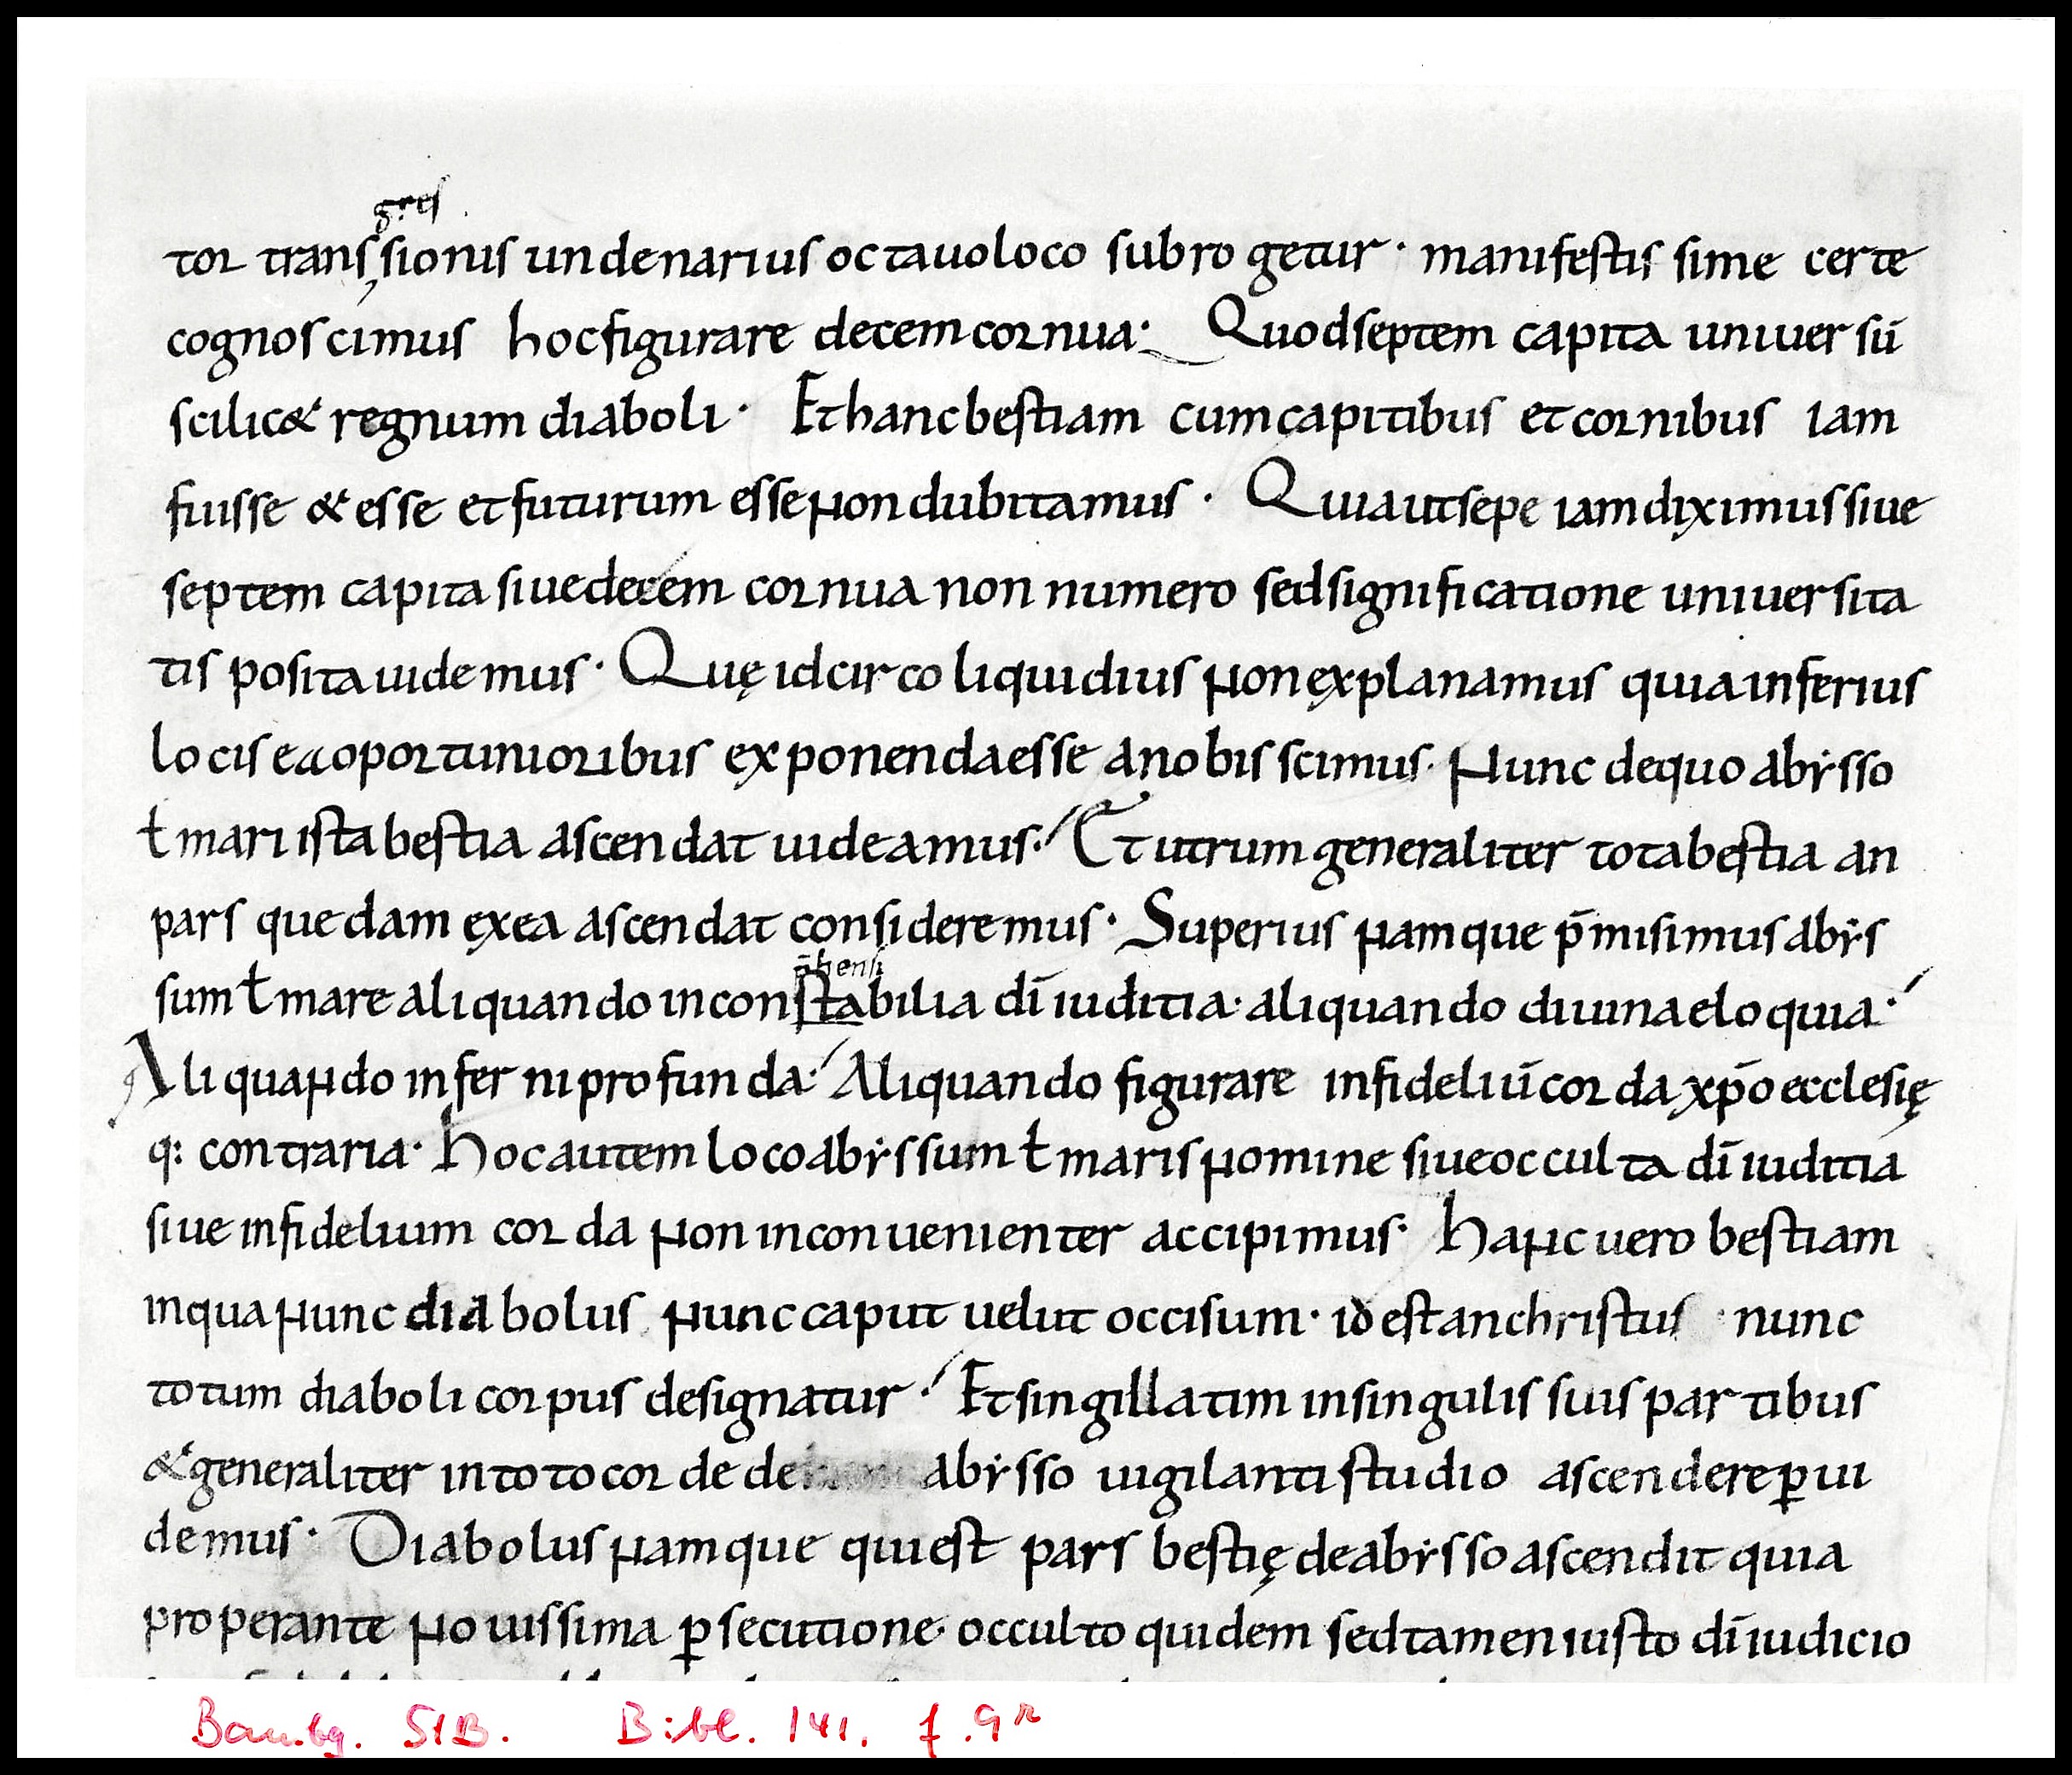 gres
tor transsionis undenarius octauo loco subrogetur· manifestissime certe
cognoscimus hoc figurare decem cornua· Quod septem capita uniuersū
scilic& regnum diaboli· Et hanc bestiam cum capitibus et cornibus iam
fuisse & esse et futurum esse non dubitamus· Quia ut sepe iam diximus siue
septem capita siue decem cornua non numero sed significatione uniuersita
tis posita uidemus· Quę idcirco liquidius non explanamus quia inferius
locis ea oportunioribus exponenda esse a nobis scimus· Nunc de quo abẏsso
ł mari ista bestia ascendat uideamus·/ Et utrum generaliter tota bestia an
pars quedam ex ea ascendat consideremus· Superius namque p̄misimus abẏs
sum ł mare aliquando inconstabilia dī iuditia· aliquando diuina eloquia·/
Aliquando inferni profunda·/ Aliquando figurare infideliū corda xp̄o ecclesię
q: contraria· Hoc autem loco abẏssum ł maris nomine siue occulta dī iuditia
siue infidelium corda non inconuenienter accipimus· Hanc uero bestiam
in qua nunc diabolus nunc caput uelut occisum· id est anchristus nunc
totum diaboli corpus designatur·/ Et singillatim in singulis suis partibus
& generaliter in toto corde de abẏsso uigilanti studio ascendere ꝑui
demus· Diabolus namque qui est pars bestię de abẏsso ascendit quia
properante nouissima ꝑsecutione· occulto quidem sed tamen iusto dī iudicio
Bambg. StB. Bibl. 141. f. 9r